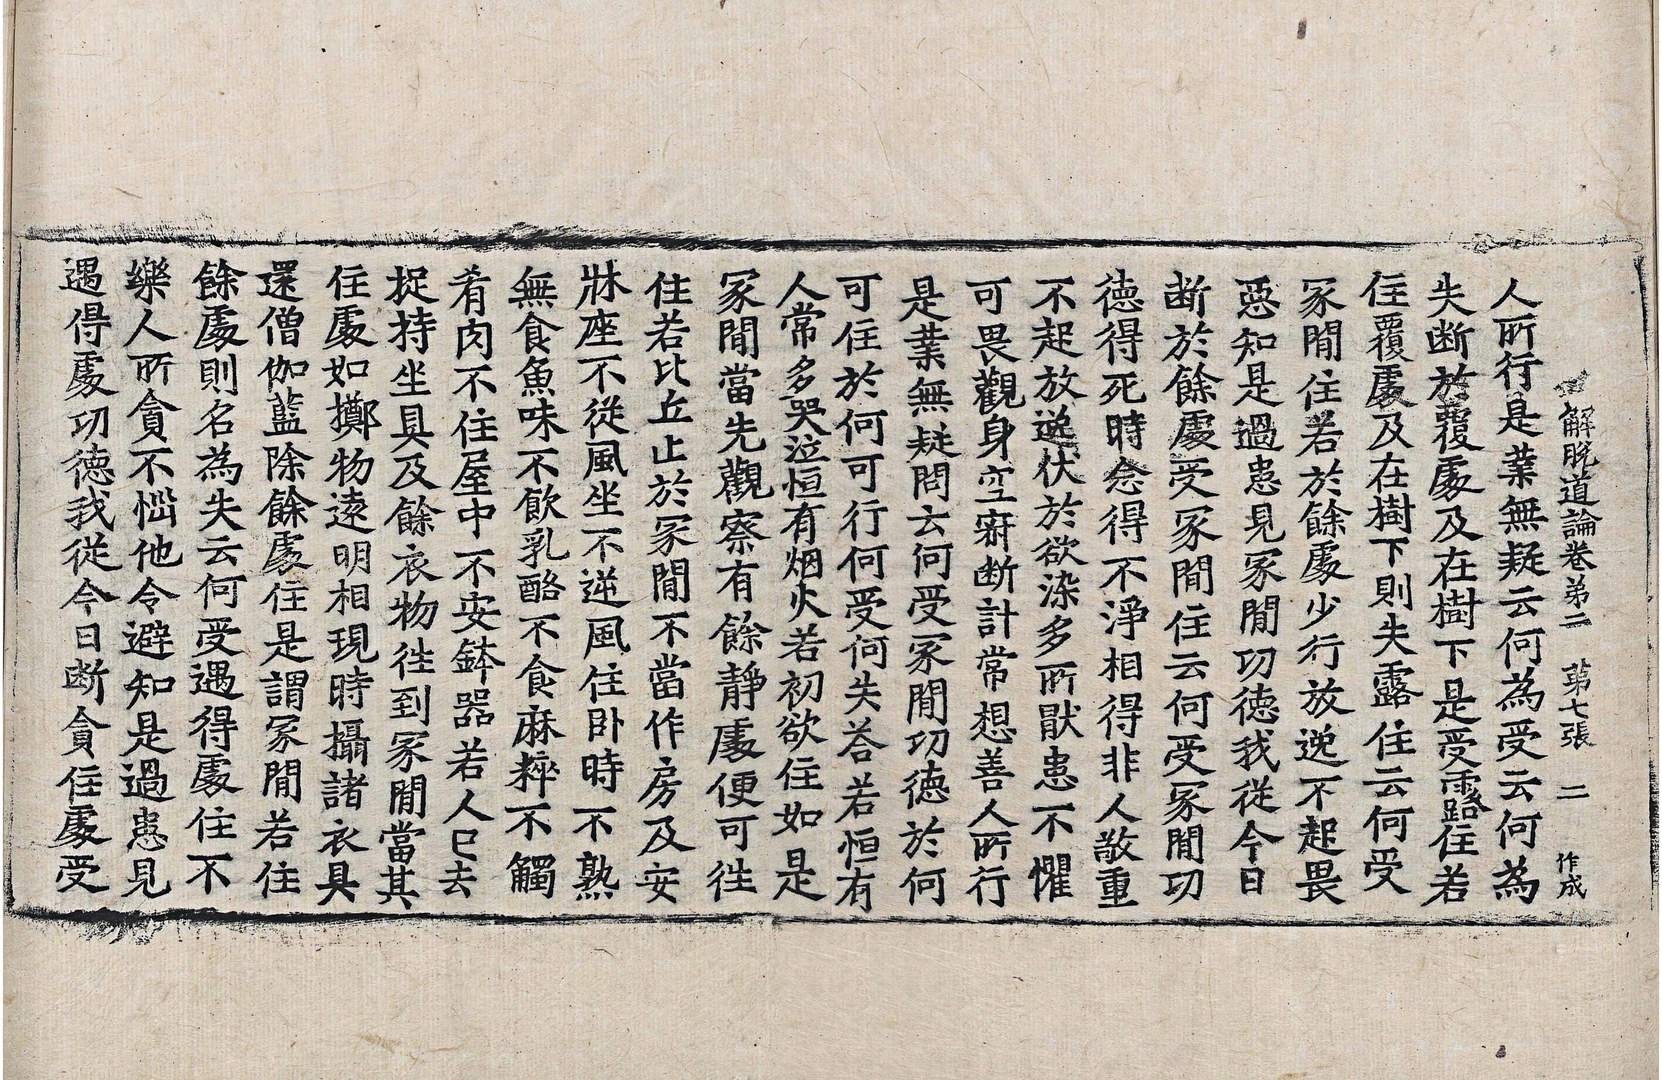 解脫道論卷第二 第七張 二 作成
人所行是業無疑云何為受云何為
失断於覆處及在樹下是受露住若
住覆處及在樹下則失露住云何受
冢閒住若於餘處少行放逸不起畏
惡知是過患見冢閒功德我從今日
断於餘處受冢閒住云何受冢閒功
德得死時念得不淨相得非人敬重
不起放逸伏於欲染多所猒患不懼
可畏觀身空寂断計常想善人所行
是業無疑問云何受冢閒功德於何
可住於何可行何受何失荅若恒有
人常多哭泣恒有烟火若初欲住如是
冢閒當先觀察有餘静處便可往
住若比丘止於冢閒不當作房及安
牀座不從風坐不逆風住卧時不熟
無食魚味不飲乳酪不食麻粹不觸
肴肉不住屋中不安鉢器若人已去
捉持坐具及餘衣物往到冢閒當其
住處如擲物遠明相現時攝諸衣具
還僧伽藍除餘處住是謂冢閒若住
餘處則名為失云何受遇得處住不
樂人所貪不惱他令避知是過患見
遇得處功德我從今日断貪住處受